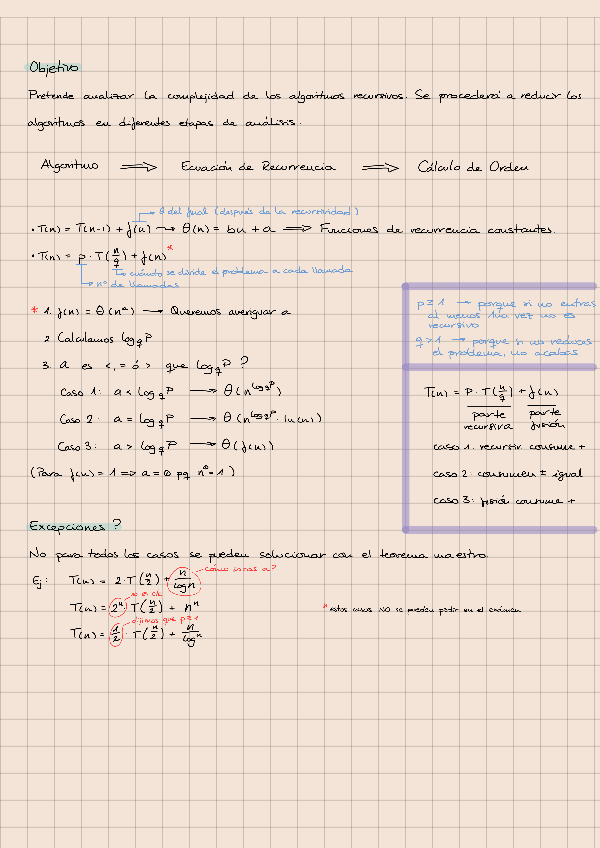 Objetivo
Pretende analizar la complejidad de los algoritmos recursivos. Se procederá a reducir los
algoritmos en diferentes etapas de análisis.
Algoritmo ⟹ Ecuación de Recurrencia ⟹ Cálculo de Orden
θ del final (después de la recursividad)
• T(n) = T(n-1) + f(n) → θ(n) = bn + a ⟹ Funciones de recurrencia constantes.
• T(n) = p · T(n/q) + f(n) *
cuánto se divide el problema a cada llamada
nº de llamadas
* 1. f(n) = θ(nᵃ) → Queremos averiguar a
2 Calculamos log_q p
3. a es <, = ó > que log_q p ?
Caso 1: a < log_q p → θ(n^(log_q p))
Caso 2: a = log_q p → θ(n^(log_q p) · ln(n))
Caso 3: a > log_q p → θ(f(n))
(Para f(n) = 1 ⟹ a = 0 pq n⁰ = 1)
p ≥ 1 → porque si no entras
al menos 1 vez no es
recursivo
q > 1 → porque si no reduces
el problema, no acabas
T(n) = P · T(n/q) + f(n)
parte recursiva parte fusión
caso 1. recursiv. consume +
caso 2: consumen ± igual
caso 3: fusión consume +
Excepciones ?
No para todos los casos se pueden solucionar con el teorema maestro.
Ej: T(n) = 2 · T(n/2) + n/log n
cómo sacas a?
no es cte.
T(n) = 2ⁿ T(n/2) + nⁿ
dijimos que p≥1
T(n) = 1/2 · T(n/2) + n/log n
* estos casos NO se pueden pedir en el exámen